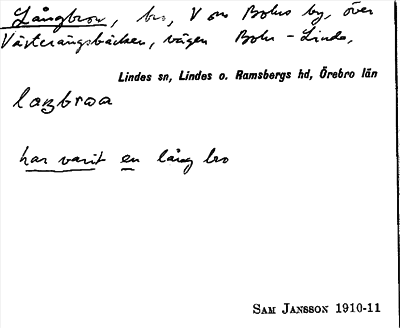 Långbron, bro, V om Bohrs by, över
Västerängsbäcken, vägen Bohr - Linde.
Lindes sn, Lindes o. Ramsbergs hd, Örebro län
har varit en lång bro
SAM JANSSON 1910-11